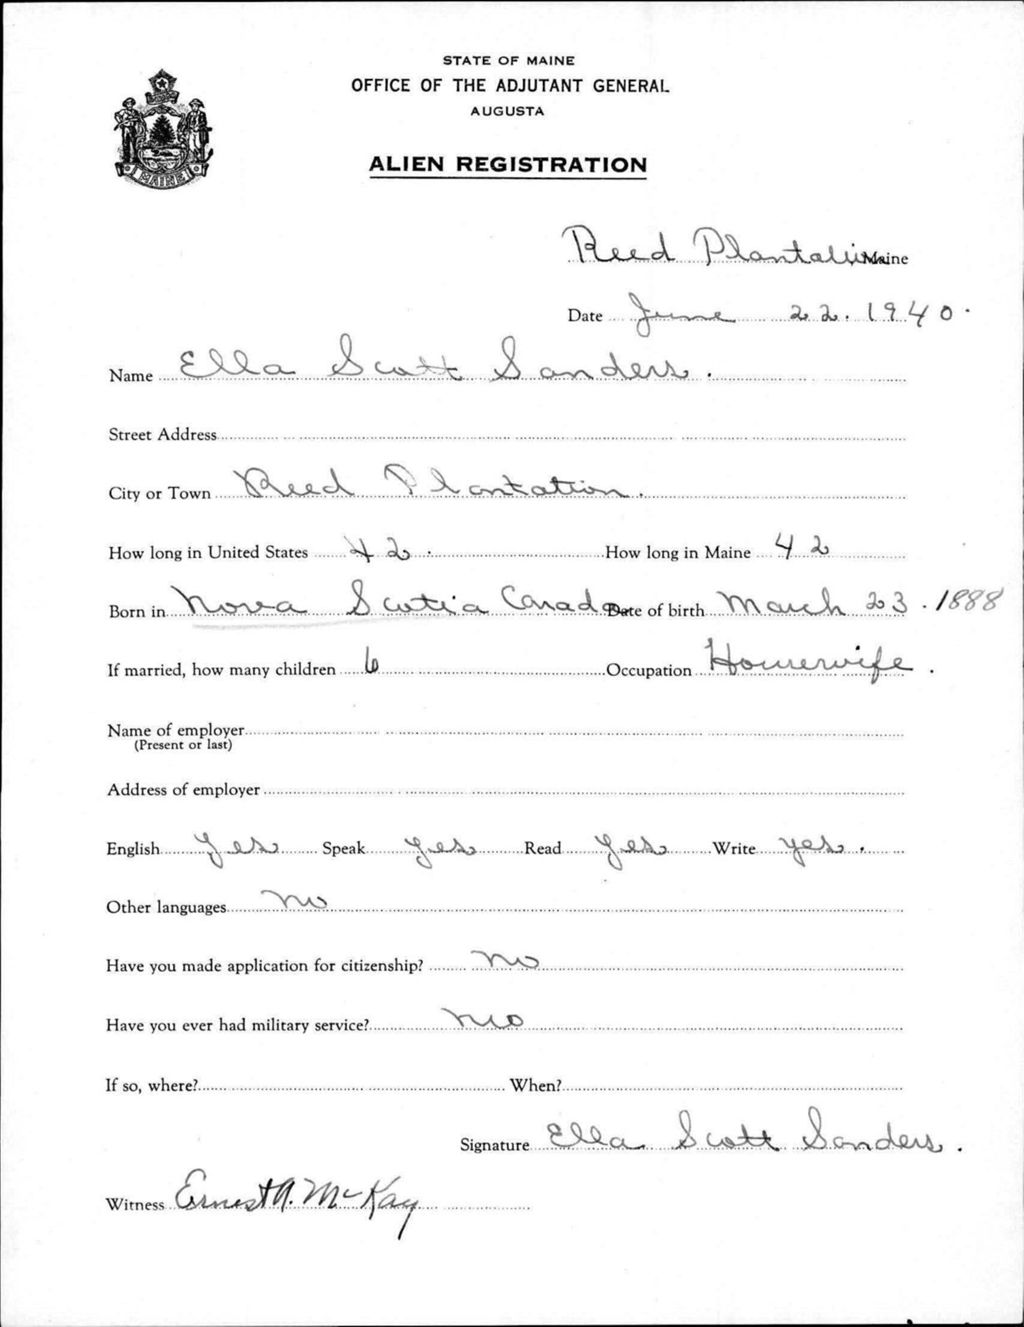 STATE OF MAINE
OFFICE OF THE ADJUTANT GENERAL
AUGUSTA
ALIEN REGISTRATION
MAINE
Reed Plantation, Maine
Date June 22. 1940.
Name Ella Scott Sanders.
Street Address
City or Town Reed Plantation.
How long in United States 42. How long in Maine 42
Born in Nova Scotia Canada Date of birth March 23. 1888
If married, how many children 6 Occupation Housewife.
Name of employer
(Present or last)
Address of employer
English Yes Speak yes Read Yes Write yes.
Other languages No
Have you made application for citizenship? No
Have you ever had military service? No
If so, where? When?
Signature Ella Scott Sanders.
Witness Ernest A. McKay